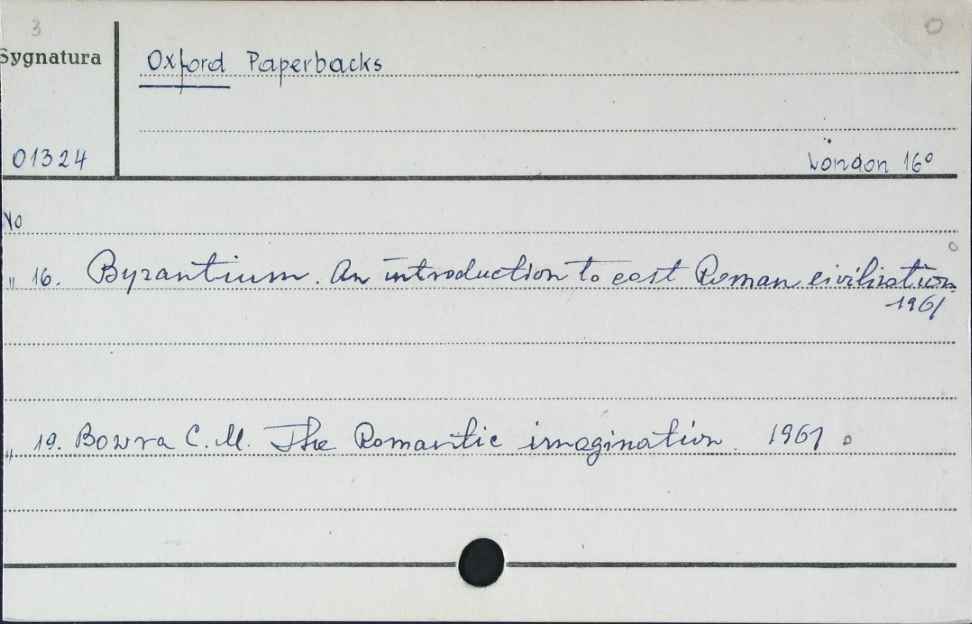 3
Sygnatura
Oxford Paperbacks
01324
London 16°
No
" 16. Byzantium. An introduction to east Roman civilization
1961
" 19. Bowra C. M. The Romantic imagination 1961